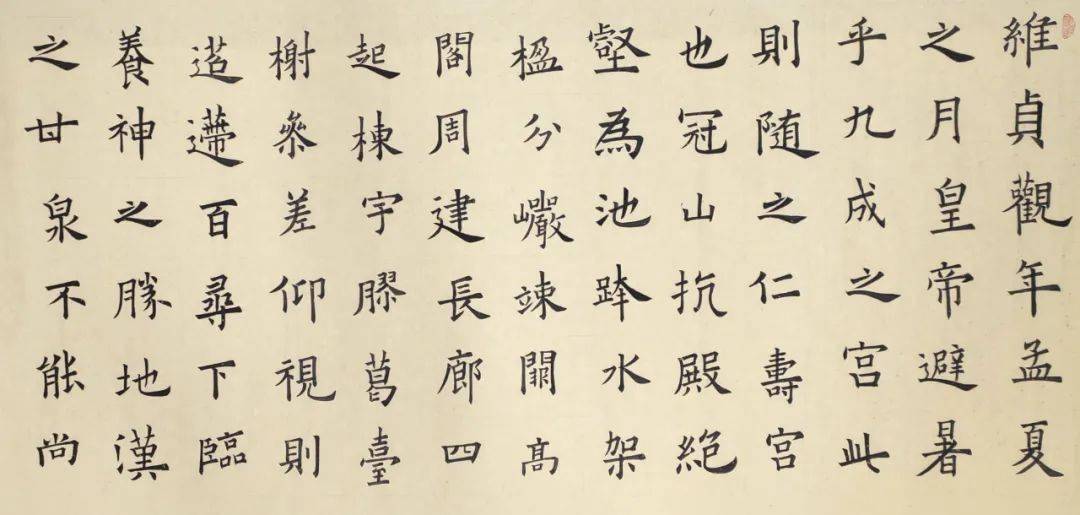 維貞觀年孟夏
之月皇帝避暑
乎九成之宮此
則随之仁壽宮
也冠山抗殿絕
壑為池跨水架
楹分巖竦闕高
閣周建長廊四
起棟宇膠葛臺
榭參差仰視則
迢遰百尋下臨
養神之勝地漢
之甘泉不能尚